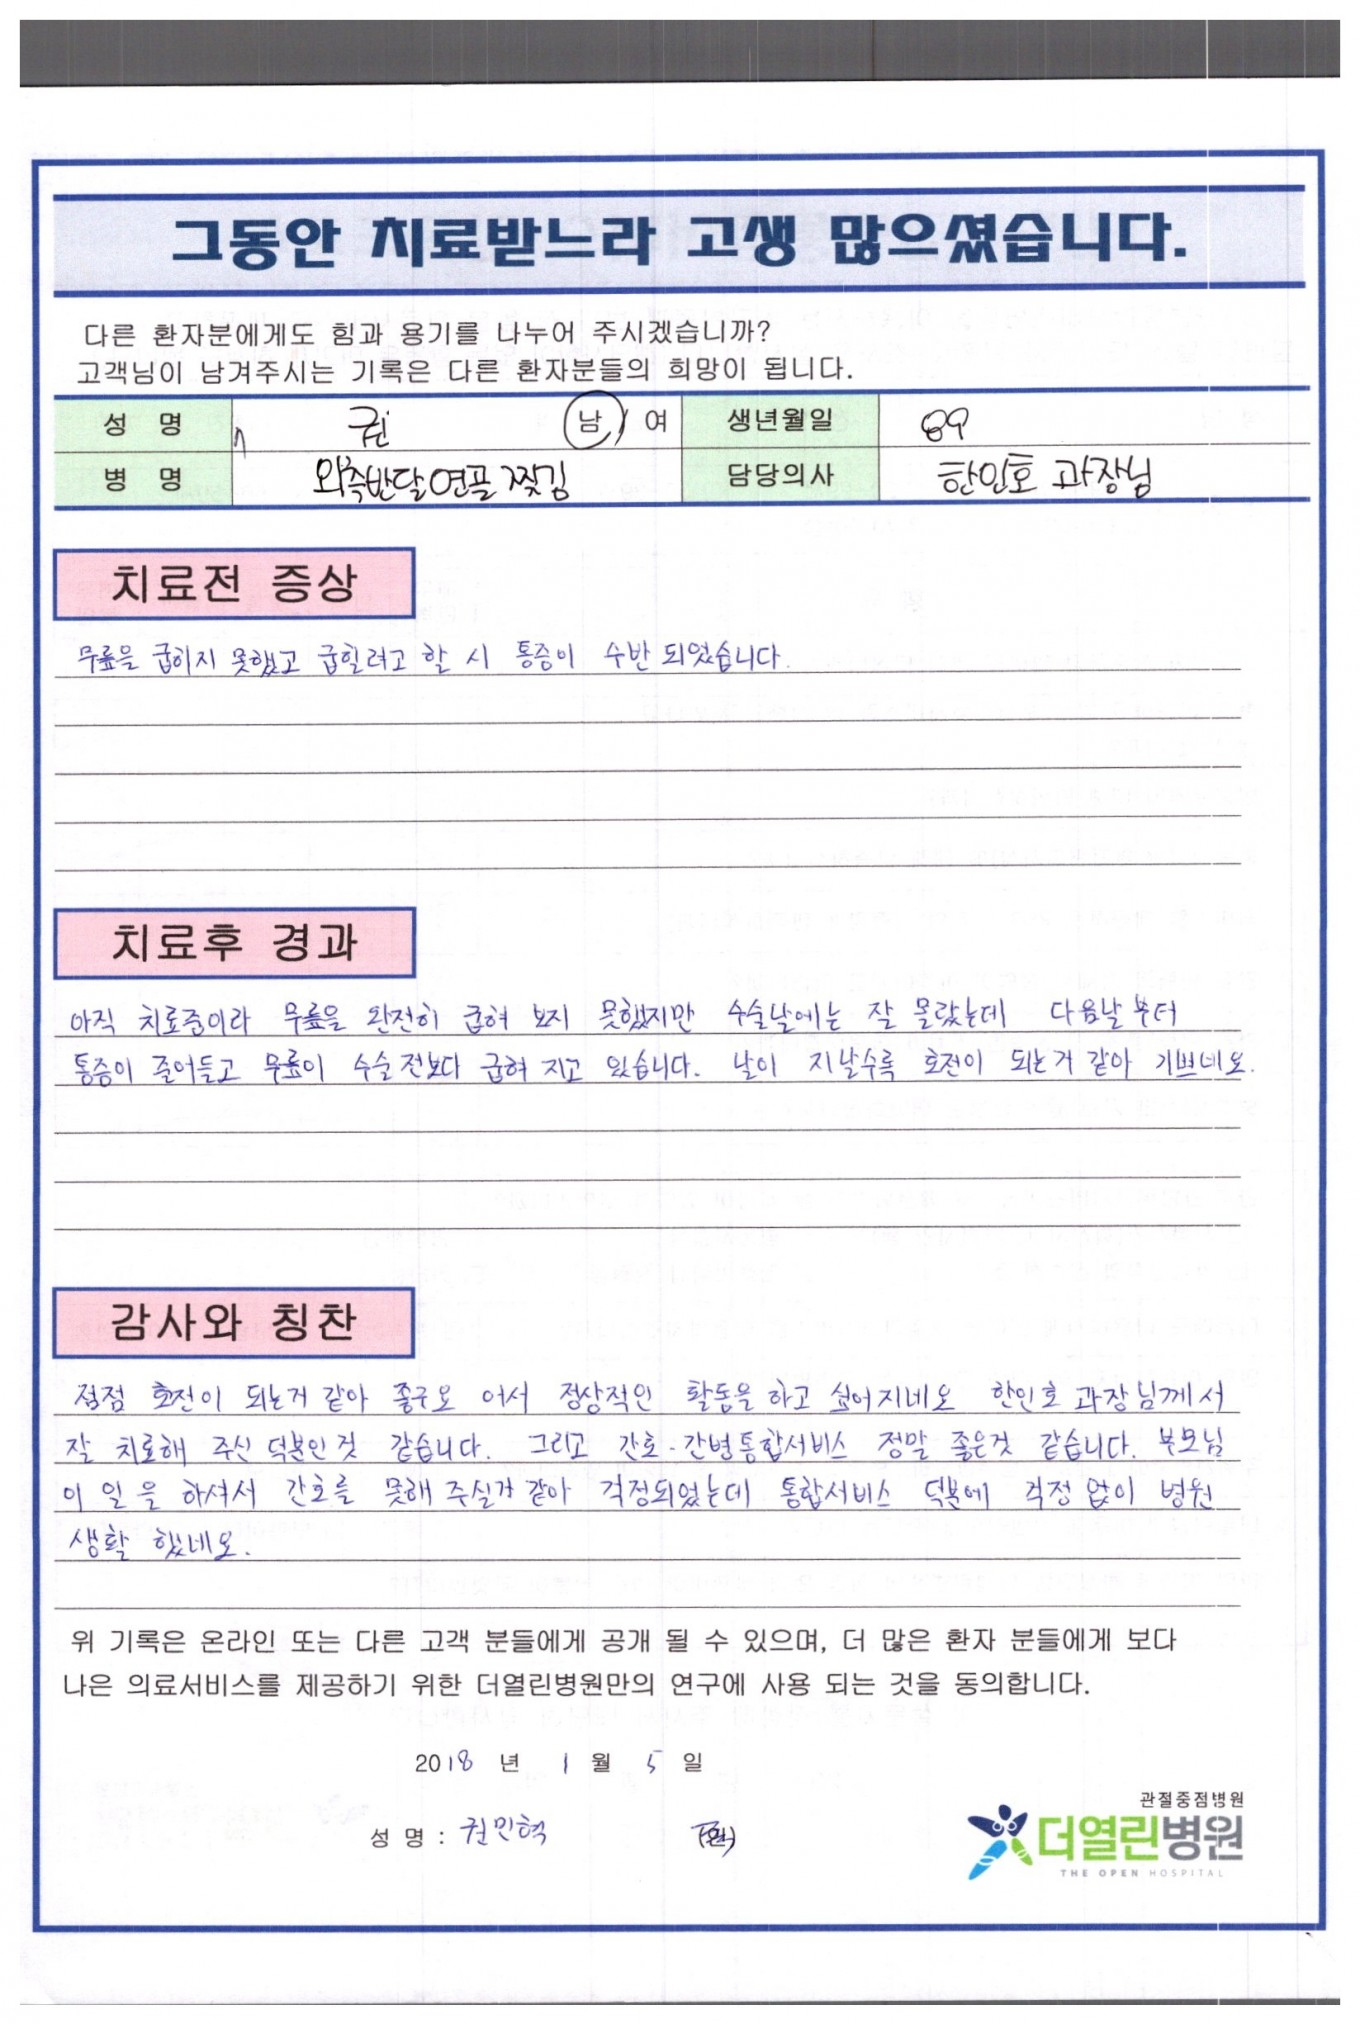 그동안 치료받느라 고생 많으셨습니다.
다른 환자분에게도 힘과 용기를 나누어 주시겠습니까?
고객님이 남겨주시는 기록은 다른 환자분들의 희망이 됩니다.
성 명 권 남 / 여 생년월일 89
병 명 외측반달연골 찢김 담당의사 한인호 과장님
치료전 증상
무릎을 굽히지 못했고 굽힐려고 할 시 통증이 수반 되었습니다.
치료후 경과
아직 치료중이라 무릎을 완전히 굽혀 보지 못했지만 수술날에는 잘 몰랐는데 다음날 부터
통증이 줄어들고 무릎이 수술 전보다 굽혀 지고 있습니다. 날이 지날수록 호전이 되는거 같아 기쁘네요.
감사와 칭찬
점점 호전이 되는거 같아 좋구요 어서 정상적인 활동을 하고 싶어지네요 한인호 과장님께서
잘 치료해 주신 덕분인것 같습니다. 그리고 간호·간병통합서비스 정말 좋은것 같습니다. 부모님
이 일을 하셔서 간호를 못해 주실거 같아 걱정되었는데 통합서비스 덕분에 걱정 없이 병원
생활 했네요.
위 기록은 온라인 또는 다른 고객 분들에게 공개 될 수 있으며, 더 많은 환자 분들에게 보다
나은 의료서비스를 제공하기 위한 더열린병원만의 연구에 사용 되는 것을 동의합니다.
2018 년 1 월 5 일
성 명 : 권민혁
관절중점병원
더열린병원
THE OPEN HOSPITAL